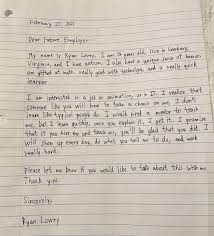 February 27, 2021
Dear Future Employer,
My name is Ryan Lowry, I am 19 years old, live in Leesburg,
Virginia, and I have autism. I also have a unique sense of humor,
am gifted at math, really good with technology, and a really quick
learner.
I am interested in a job in animation, or in IT. I realize that
someone like you will have to take a chance on me, I don't
learn like typical people do. I would need a mentor to teach
me, but I learn quickly, once you explain it, I get it. I promise
that if you hire me and teach me, you'll be glad that you did. I
will show up every day, do what you tell me to do, and work
really hard.
Please let me know if you would like to talk about this with me.
Thank you.
Sincerely,
Ryan Lowry